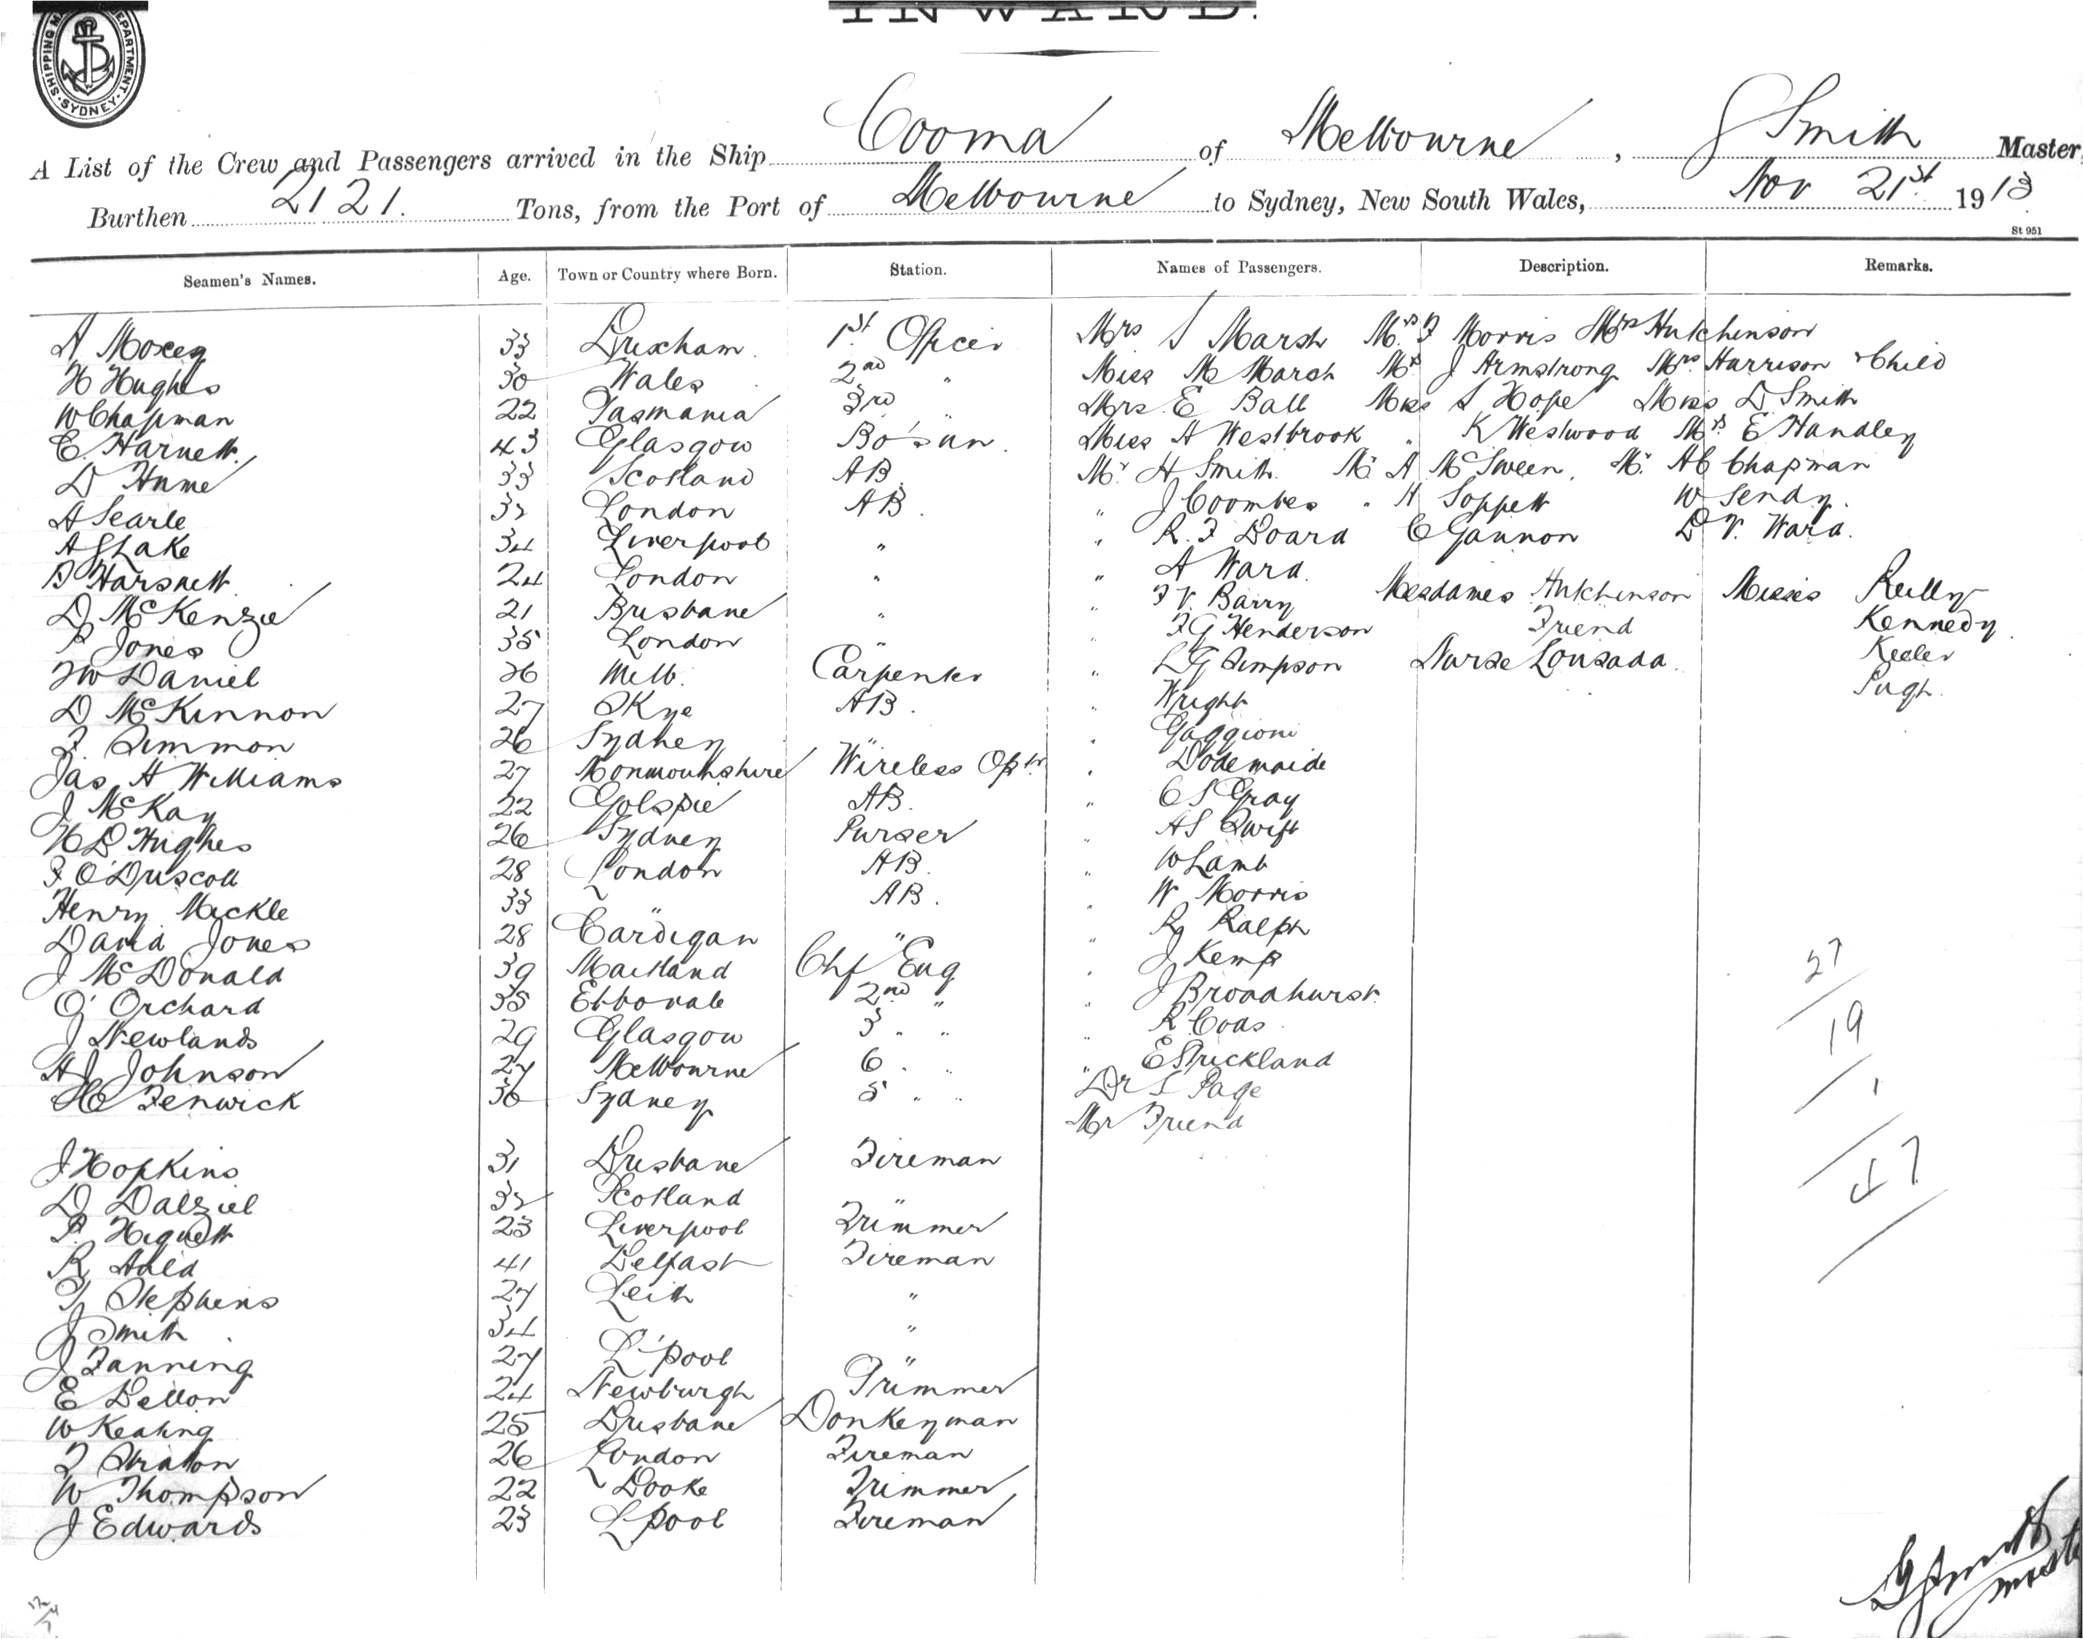 INWARD.
SHIPPING M DEPARTMENT SYDNEY
A List of the Crew and Passengers arrived in the Ship Cooma of Melbourne, J Smith Master
Burthen 2121. Tons, from the Port of Melbourne to Sydney, New South Wales, Nov 21st 1913
St 951
Seamen's Names. Age. Town or Country where Born. Station. Names of Passengers. Description. Remarks.
A Moxey 33 Brixham. 1st Officer Mrs S Marsh Mrs F Morris Mrs Hutchinson
H Hughes 30 Wales 2nd " Miss M Marsh Mrs J Armstrong Mrs Harrison & Child
W Chapman 22 Tasmania 3rd " Mrs E Ball Miss S Hope Miss D Smith
E. Harnett. 43 Glasgow Bo'sun. Miss A Westbrook " K Westwood Mrs E Handley
D Hume 33 Scotland AB. Mr H Smith. Mr A McSween, Mr. AC Chapman
A Searle 32 London AB. " J Coombes " H Soppett W Sendy.
A S Lake 34 Liverpool " " R. F Board C Gannon D V. Ward.
Harsnett. 24 London " " A Ward.
D McKenzie 21 Brisbane " " F V. Barry Mesdames Hutchinson Misses Reilly
P Jones 35 London " " F G Henderson Friend Kennedy.
FW Daniel 26 Melb. Carpenter " L G Simpson Nurse Lousada. Keeler
D McKinnon 27 Skye AB. " Wright Pugh.
F. Simmon 26 Sydney " " Gaggioni
Jas H Williams 27 Monmouthshire Wireless Optr. " Dodemaide
J McKay 22 Golspie AB. " C S Gray
H D Hughes 26 Sydney Purser " A S Swift
F O'Driscoll 28 London AB. " W Lamb
Henry Mickle 33 " AB. " W Morris
David Jones 28 Cardigan " " R Ralph
J McDonald 39 Maitland Chf Eng " J Kemp
O' Orchard 35 Ebbovale 2nd " " J Broadhurst.
J Newlands 29 Glasgow 3 " " " R Coas
A J Johnson 27 Melbourne 6 " " " E Strickland
Fenwick 36 Sydney 5 " " Dr S Page
Mr Friend
27
19
1
47
J Hopkins 31 Brisbane Fireman
D Dalziel 32 Scotland "
P. Hignett 23 Liverpool Trimmer
R Auld 41 Belfast Fireman
T Stephens 27 Leith "
J Smith 34 " "
J Fanning 27 L'pool "
E Dellon 24 Newburgh Trimmer
W Keating 25 Brisbane Donkeyman
F Straton 26 London Fireman
W Thompson 22 Booke Trimmer
J Edwards 23 L'pool Fireman
J Smith